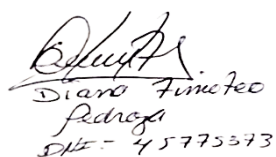 Diana Timoteo
Pedroza
DNI - 45775373